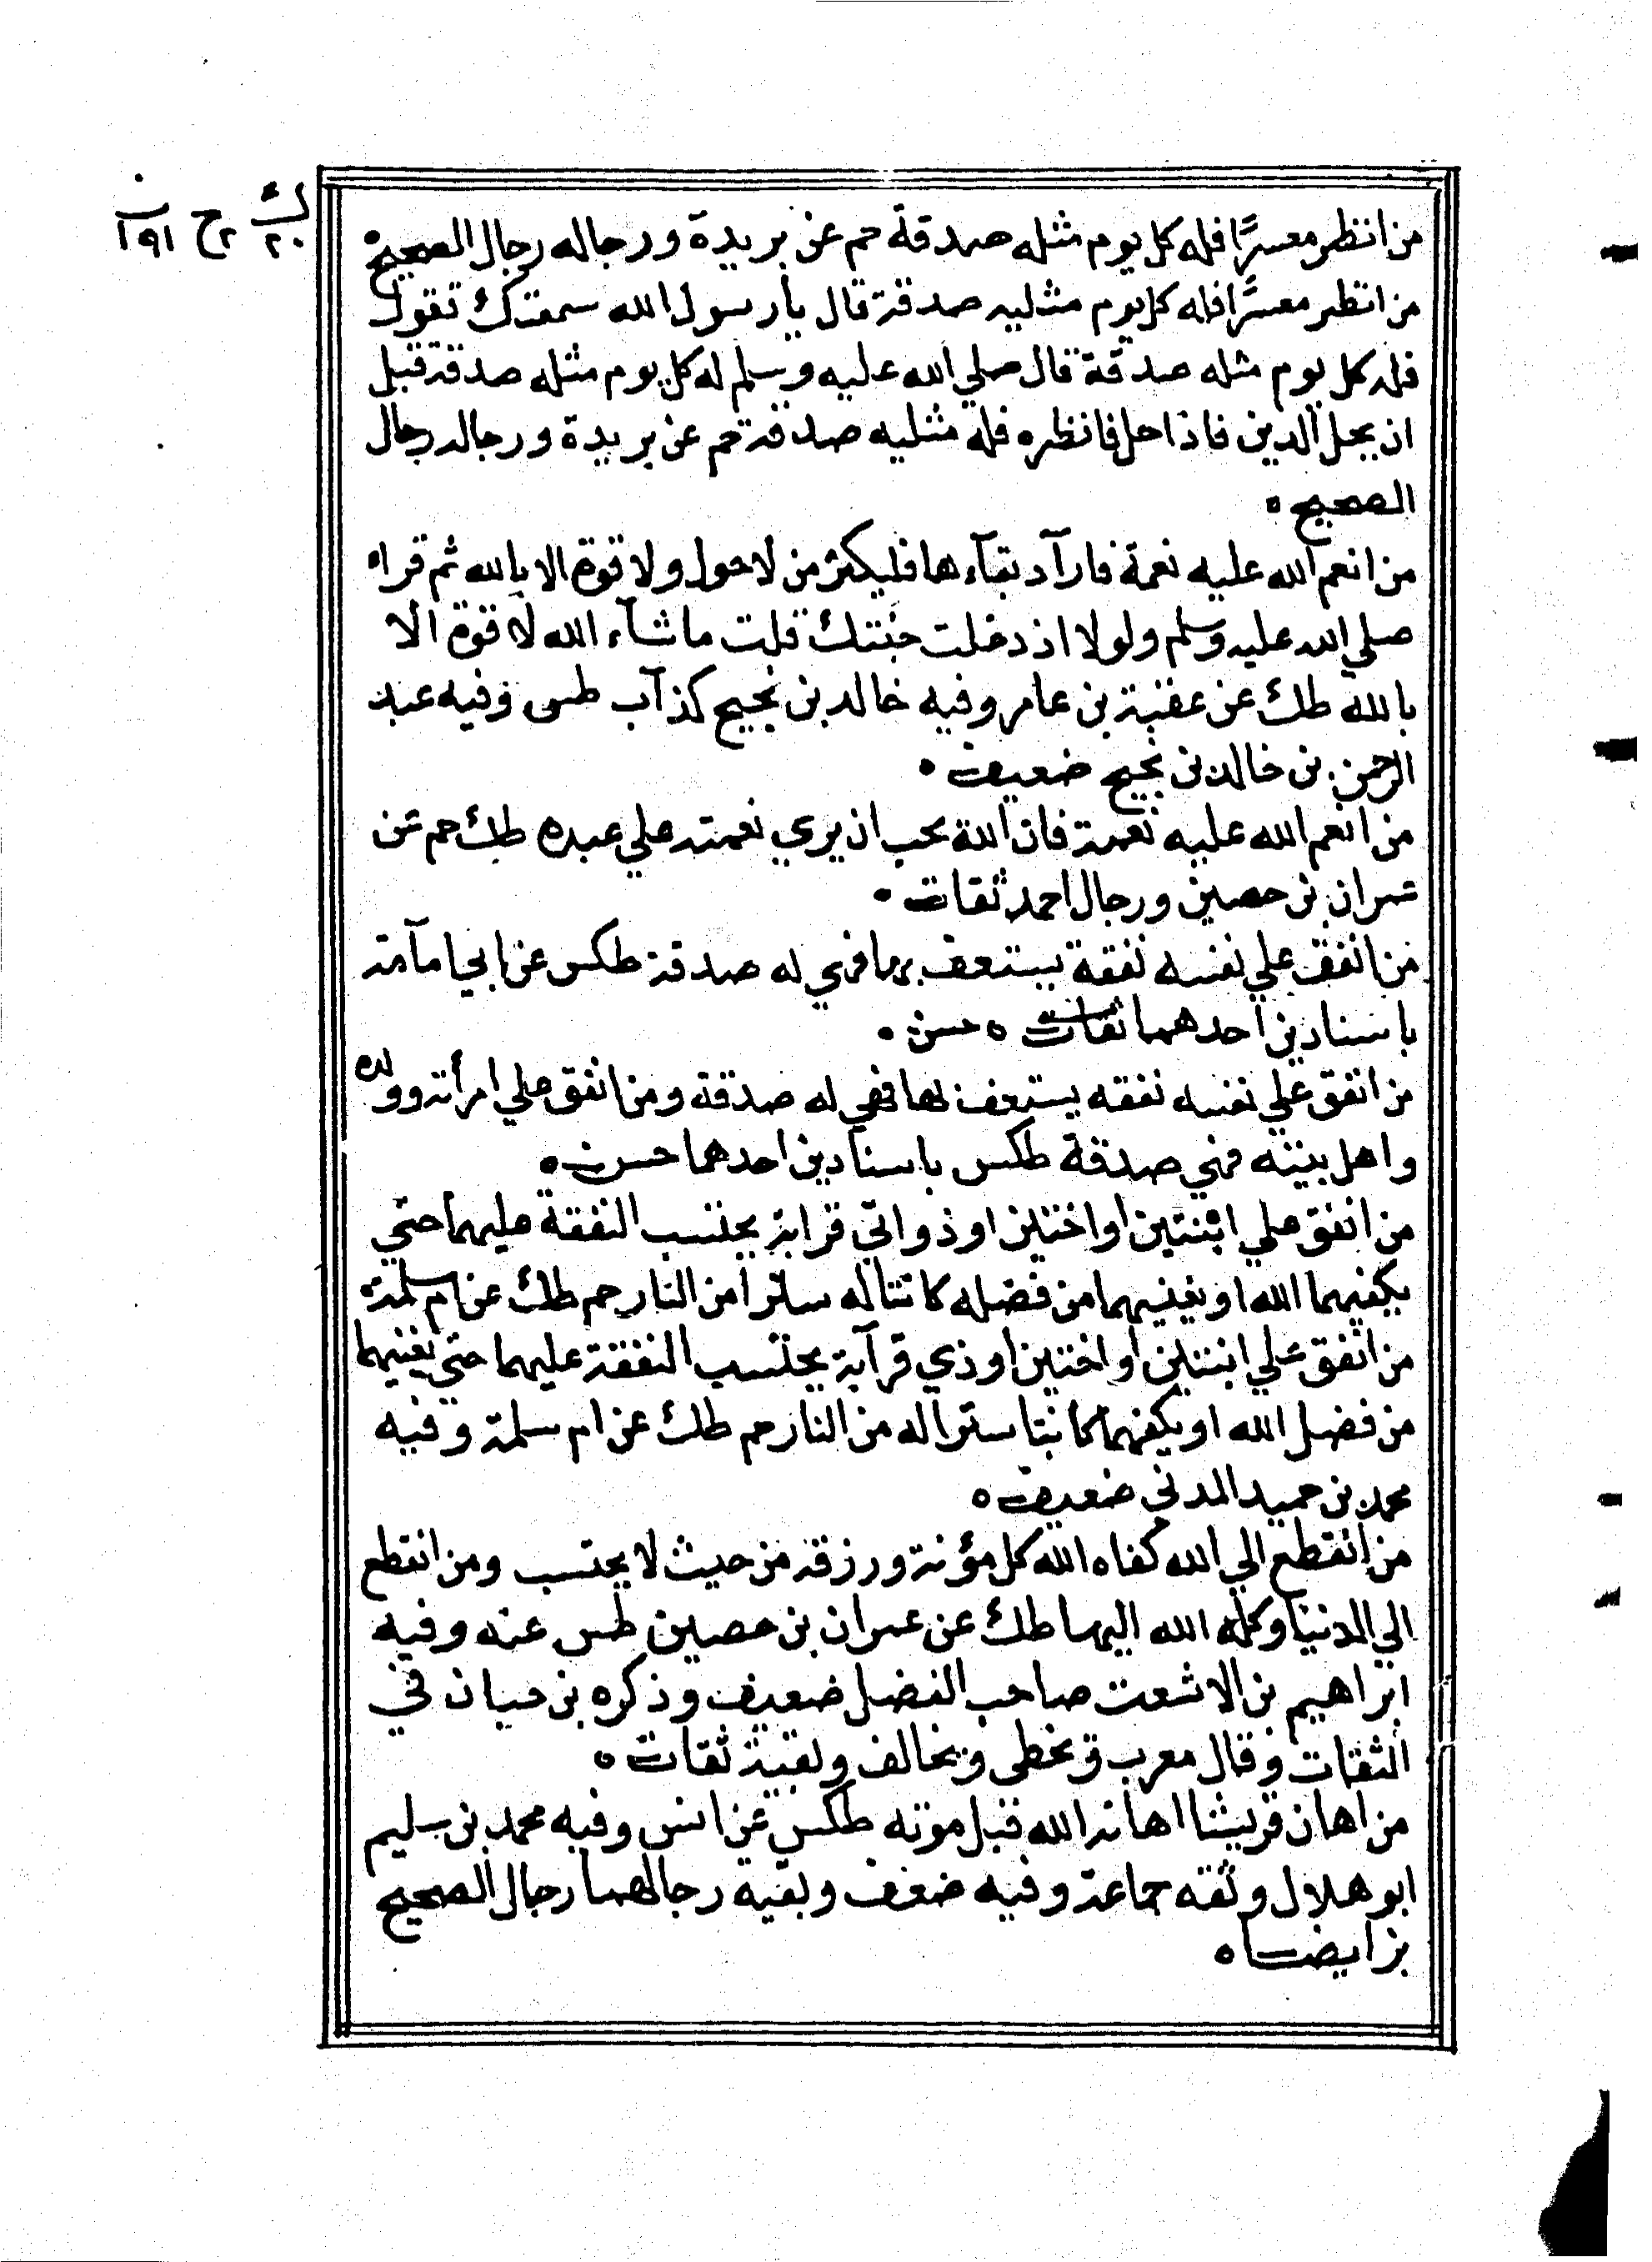 من انظر معسرًا فله كل يوم مثله صدقة حم عن بريدة ورجاله رجال الصحيح ه
من انظر معسرًا فله كل يوم مثليه صدقة قال يارسول الله سمعتك تقول
فله كل يوم مثله صدقة قال صلي الله عليه وسلم له كل يوم مثله صدقة قبل
ان يحل الدين فاذا حل فانظره فله مثليه صدقة حم عن بريدة ورجاله رجال
الصحيح ه
من انعم الله عليه نعمة فارآد بقآءها فليكثر من لاحول ولا قوة الا بالله ثم قراه
صلي الله عليه وسلم ولولا اذ دخلت جنتك قلت ما شآء الله لا قوة الا
بالله طك عن عقبة بن عامر وفيه خالد بن نجيح كذآب طس وفيه عبد
الرحمن بن خالد بن نجيح ضعيف ه
من انعم الله عليه نعمة فان الله يحب ان يري نعمته علي عبده طك حم عن
عمران بن حصين ورجال احمد ثقات ه
من انفق علي نفسه نفقة يستعف بها فهي له صدقة طكس عن ابي امآمة
باسنادين احدهما ثقات ه حسن ه
من انفق علي نفسه نفقه يستعف بها فهي له صدقة ومن انفق علي امرأته وولده
واهل بيته فهي صدقة طكس باسنادين احدهما حسن ه
من انفق علي ابنتين او اختين او ذواتي قرابة يحتسب النفقة عليهما حتي
يكفيهما الله او يغنيهما من فضله كانتا له سترا من النار حم طك عن ام سلمة ه
من انفق علي ابنتين او اختين او ذي قرآبة يحتسب النفقة عليهما حتي يغنيهما
من فضل الله او يكفهما كانتا سترا له من النار حم طك عن ام سلمة وفيه
محمد بن حميد المدني ضعيف ه
من انقطع الي الله كفاه الله كل مؤنة ورزقه من حيث لا يحتسب ومن انقطع
الي الدنيا وكله الله اليها طك عن عمران بن حصين طس عنه وفيه
ابراهيم بن الاشعت صاحب الفضل ضعيف وذكره بن حبان في
الثقات وقال معرب ق يخطي ويخالف وبقية ثقات ه
من اهان قريشا اهانه الله قبل موته طكس عن انس وفيه محمد بن سليم
ابو هلال وثقه جماعة وفيه ضعف وبقيه رجالهما رجال الصحيح
بز ايضا ه